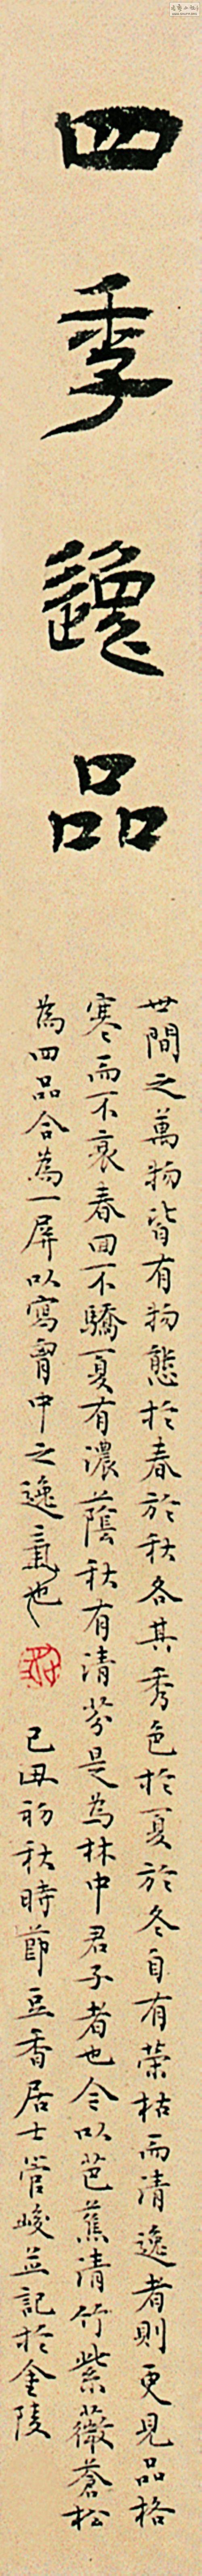 四季逸品
世間之萬物皆有物態於春於秋各其秀色於夏於冬自有榮枯而清逸者則更見品格
寒而不衰春回不驕夏有濃蔭秋有清芬是為林中君子者也今以芭蕉清竹紫薇蒼松
為四品合為一屏以寫胷中之逸氣也
己丑初秋時節豆香居士管峻並記於金陵